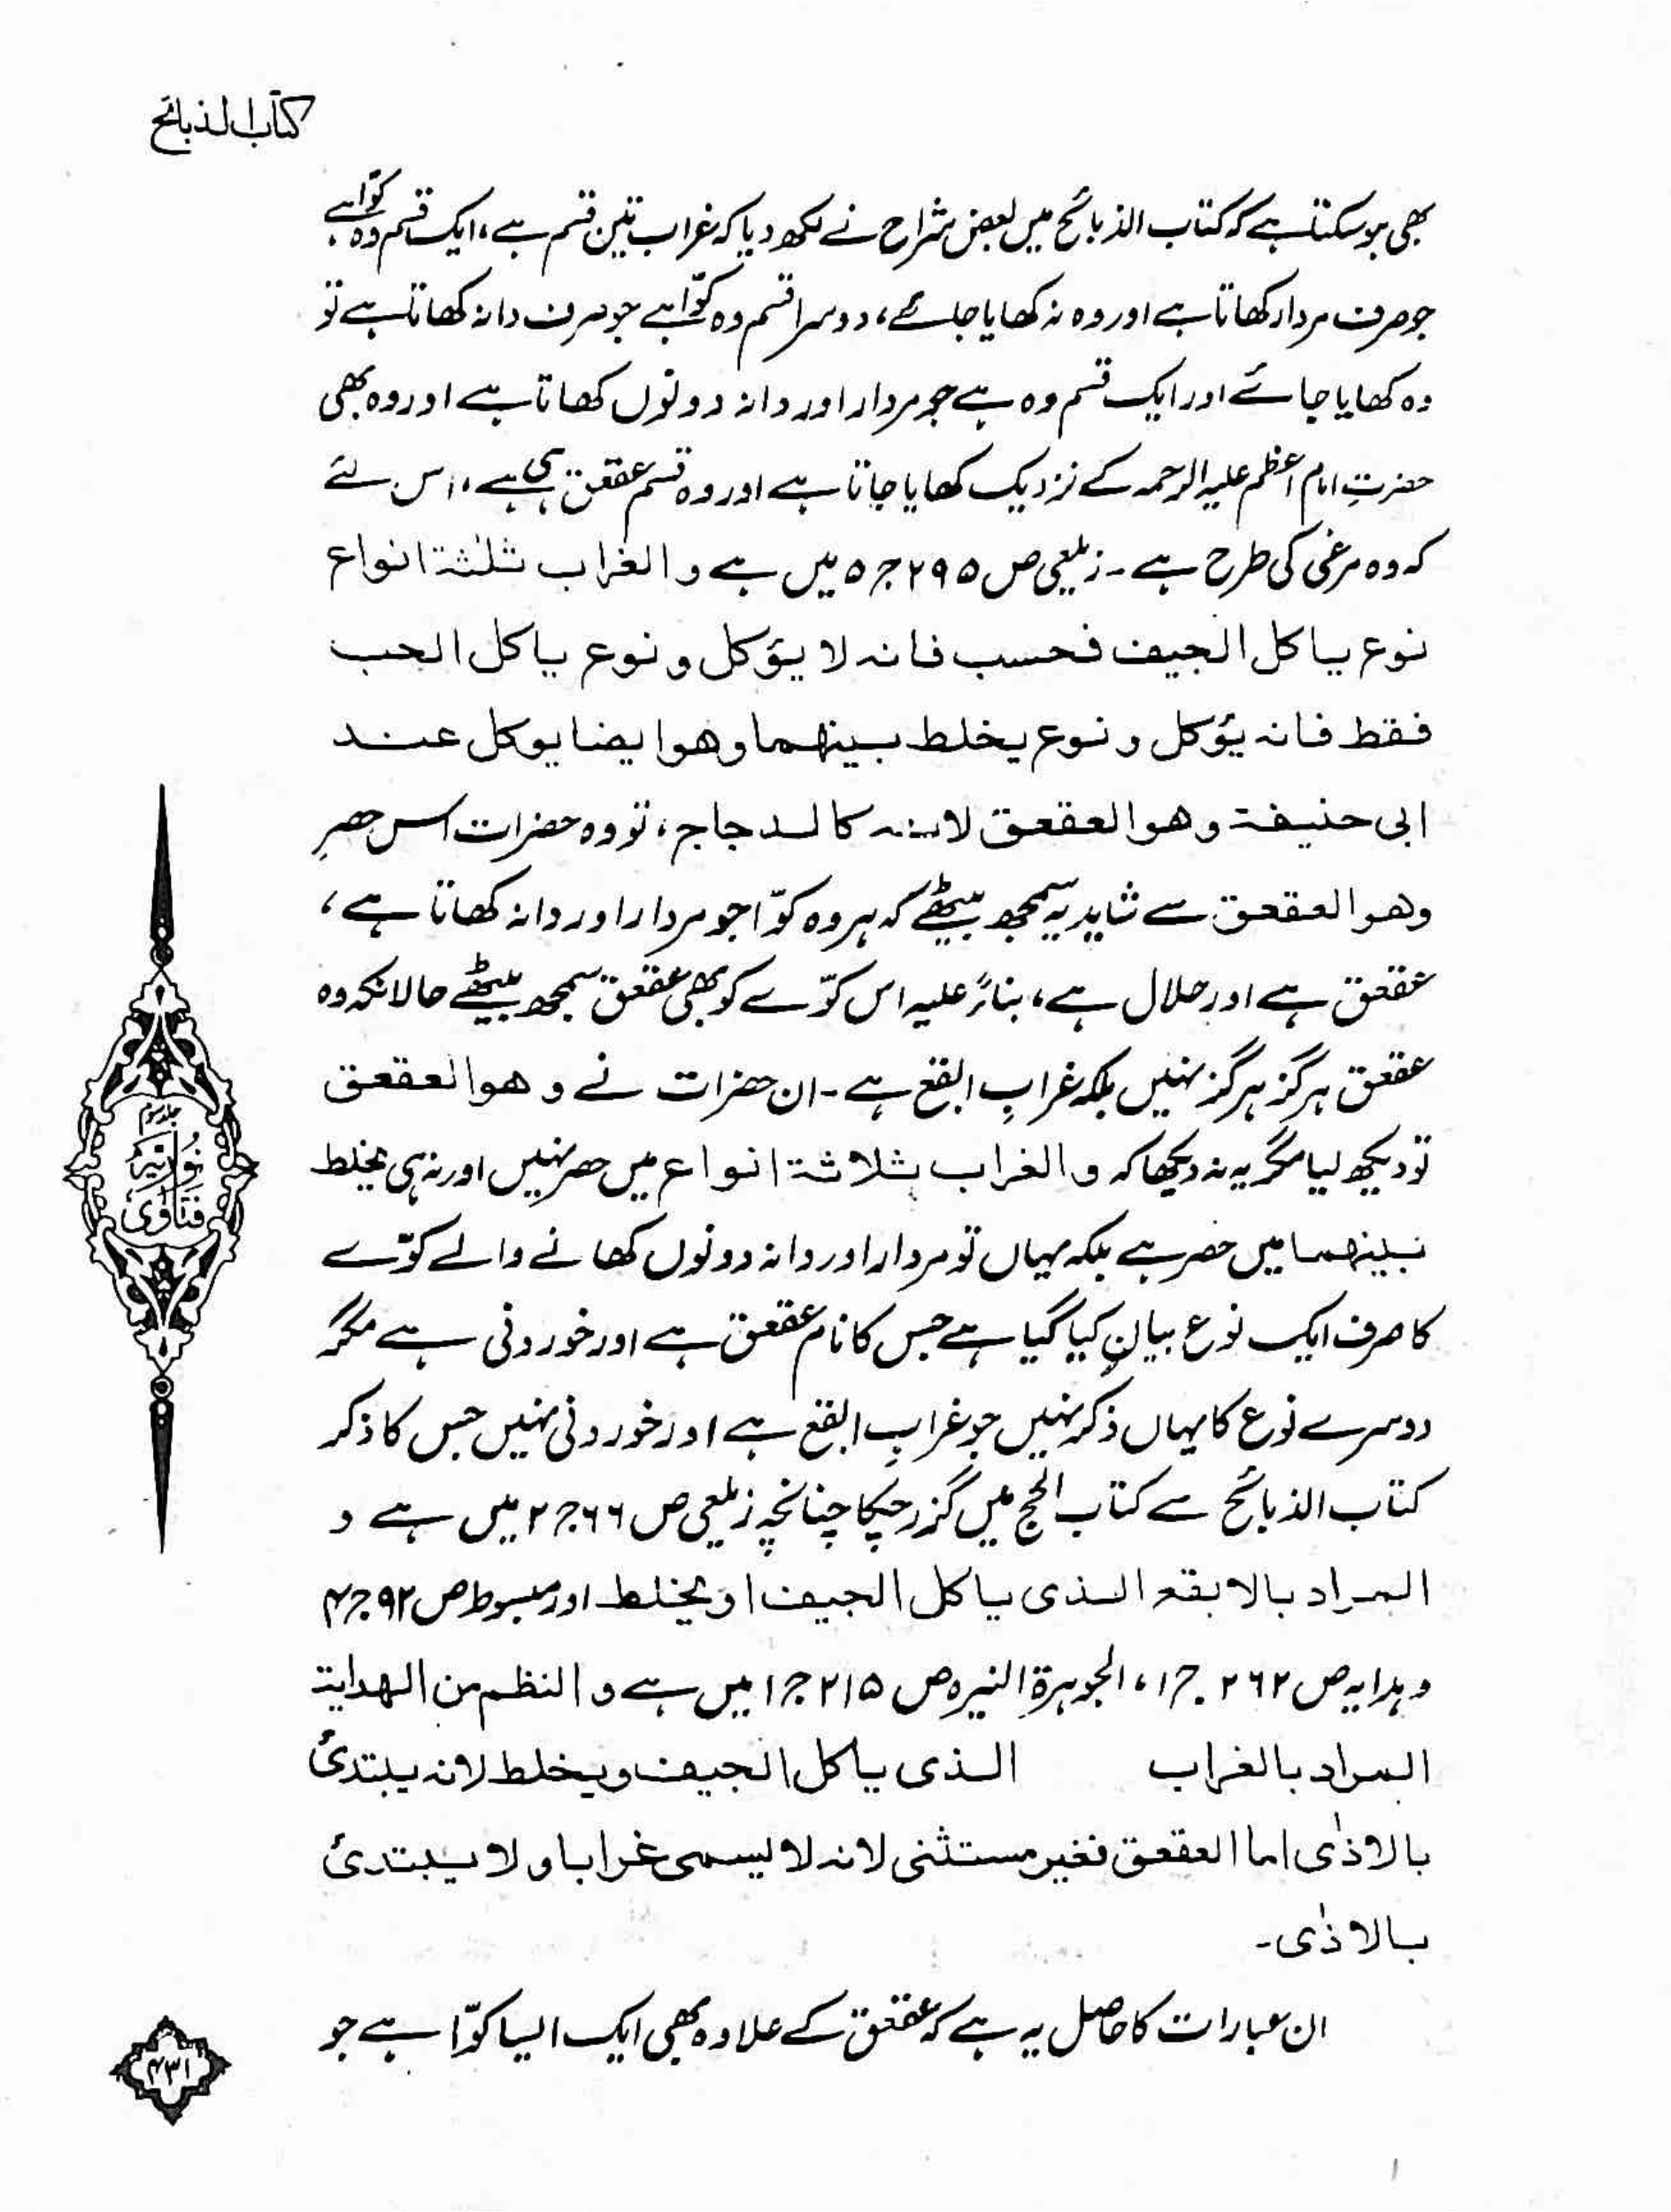 کتاب الذبائح
بھی ہو سکتا ہے کہ کتاب الذبائح میں بعض شراح نے لکھ دیا کہ غراب تین قسم ہے، ایک قسم وہ کوّا ہے
جو صرف مردار کھاتا ہے اور وہ نہ کھایا جائے، دوسرا قسم وہ کوّا ہے جو صرف دانہ کھاتا ہے تو
وہ کھایا جائے اور ایک قسم وہ ہے جو مردار اور دانہ دونوں کھاتا ہے اور وہ بھی
حضرتِ امام اعظم علیہ الرحمہ کے نزدیک کھایا جاتا ہے اور وہ قسم عقعق ہی ہے، اس لئے
کہ وہ مرغی کی طرح ہے۔ زیلعی ص ۲۹۵ ج ۵ میں ہے و الغراب ثلٰثۃ انواع
نوع یاکل الجیف فحسب فانہ لا یؤکل و نوع یاکل الحب
فقط فانہ یؤکل و نوع یخلط بینھما و ھو ایضا یوکل عند
ابی حنیفۃ و ھو العقعق لانہ کالدجاج، تو وہ حضرات اس حصرِ
وھو العقعق سے شاید یہ سمجھ بیٹھے کہ ہر وہ کوّا جو مردار اور دانہ کھاتا ہے،
عقعق ہے اور حلال ہے، بناءً علیہ اس کوّے کو بھی عقعق سمجھ بیٹھے حالانکہ وہ
عقعق ہرگز ہرگز نہیں بلکہ غرابِ ابقع ہے۔ ان حضرات نے و ھو العقعق
تو دیکھ لیا مگر یہ نہ دیکھا کہ و الغراب ثلاثۃ انواع میں حصر نہیں اور نہ ہی یخلط
بینھما میں حصر ہے بلکہ یہاں تو مردار اور دانہ دونوں کھانے والے کوّے
کا صرف ایک نوع بیان کیا گیا ہے جس کا نام عقعق ہے اور خوردنی ہے مگر
دوسرے نوع کا یہاں ذکر نہیں جو غرابِ ابقع ہے اور خوردنی نہیں جس کا ذکر
کتاب الذبائح سے کتاب الحج میں گزر چکا چنانچہ زیلعی ص ۶۶ ج ۲ میں ہے و
المراد بالابقع الذی یاکل الجیف او یخلط اور مبسوط ص ۹۲ ج ۴
و ہدایہ ص ۲۶۲ ج ۱، الجوہرۃ النیرہ ص ۲۱۵ ج ۱ میں ہے و النظم من الھدایۃ
المراد بالغراب الذی یاکل الجیف و یخلط لانہ یبتدئ
بالاذٰی اما العقعق فغیر مستثنی لانہ لا یسمی غرابا و لا یبتدئ
بالاذٰی۔
ان عبارات کا حاصل یہ ہے کہ عقعق کے علاوہ بھی ایک ایسا کوّا ہے جو
جلد سوم
نوریہ
فتاویٰ
۴۳۱